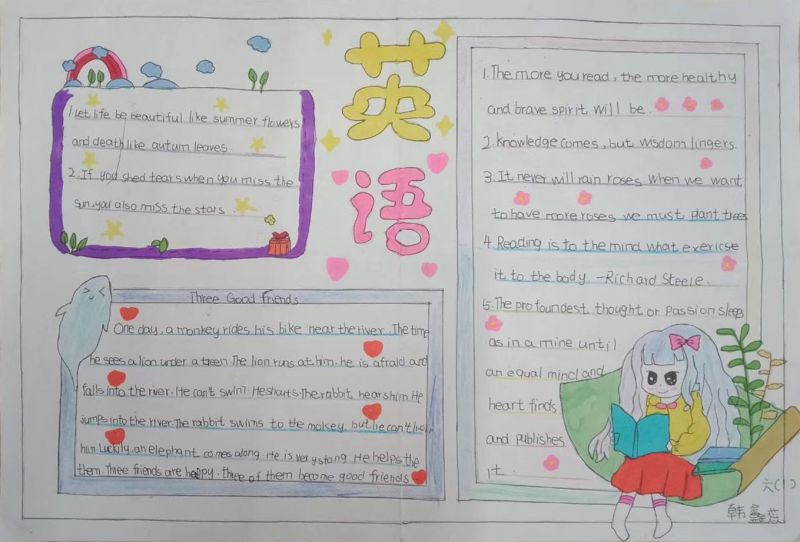 英语
1. Let life be beautiful like summer flowers
and death like autum leaves.
2. If you shed tears when you miss the
sun, you also miss the stars.
Three Good friends
One day, a monkey rides his bike near the river. The time
he sees a lion under a treen. The lion runs at him. he is afraid and
falls into the river. He can't swim. He shouts. The rabbit hears him. He
jumps into the river. The rabbit swims to the mokey, but he can't help
him Luckily, an elephant comes along. He is very stong. He helps the
them. Three friends are happy. Three of them become good friends
1. The more you read, the more healthy
and brave spirit will be.
2. Knowledge comes, but wisdom lingers.
3. It never will rain roses when we want
to have more roses we must plant trees
4. Reading is to the mind what exericse
it to the body. -Richard Steele.
5. The profoundest thought or passion sleeps
as in a mine until
an equal mind and
heart finds
and publishes
it.
六(1)
韩鑫蕊